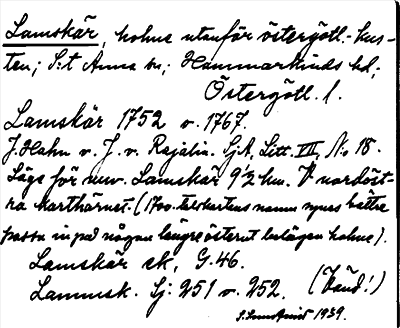 Lamskär, holme utanför östergötl.-kus-
ten; S:t Anna sn; Hammarkinds hd;
Östergötl. l.
Lamskär 1752 o. 1767.
J. Hahn o. J. v. Rajalin. SjA, Litt. VII, No 18.
Läge för nuv. Lamskär 9½ km. V nordöst-
ra karthörnet. (1700-talskartans namn synes bättre
passa in på någon längre österut belägen holme).
Lamskär ek, G.46.
Lammsk. Sj: 251 o. 252. (Vänd!)
1939.